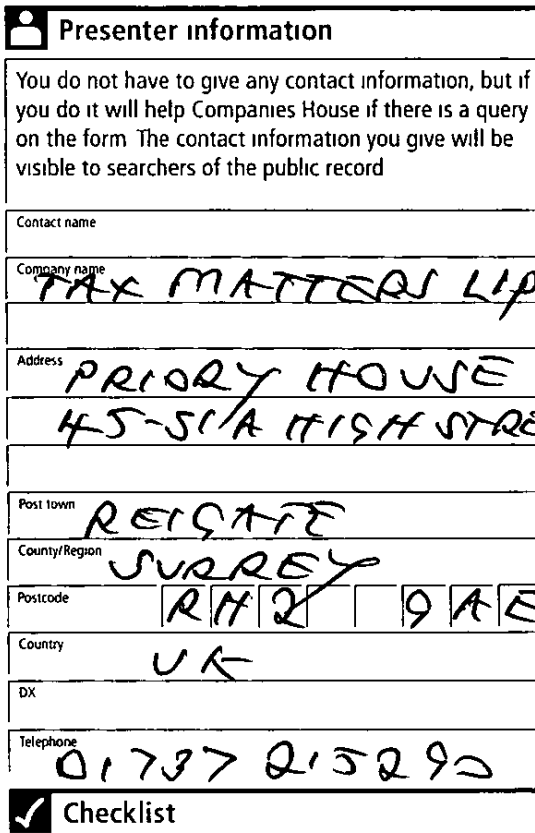 Presenter information
You do not have to give any contact information, but if
you do it will help Companies House if there is a query
on the form The contact information you give will be
visible to searchers of the public record
Contact name
Company name
TAX MATTERS LLP
Address
PRIORY HOUSE
45-51/A HIGH STRE
Post town
REIGATE
County/Region
SURREY
Postcode
RH2 9AE
Country
UK
DX
Telephone
01737 215290
Checklist